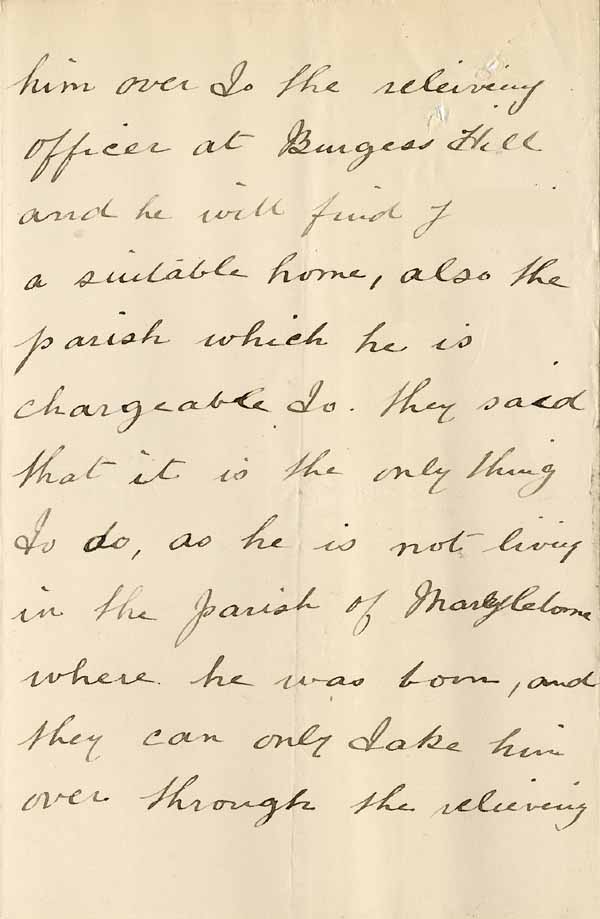 him over to the releiving
officer at Burgess Hill
and he will find
a suitable home, also the
parish which he is
chargeable to. they said
that it is the only thing
to do, as he is not living
in the parish of Marylebone
where he was born, and
they can only take him
over through the relieving